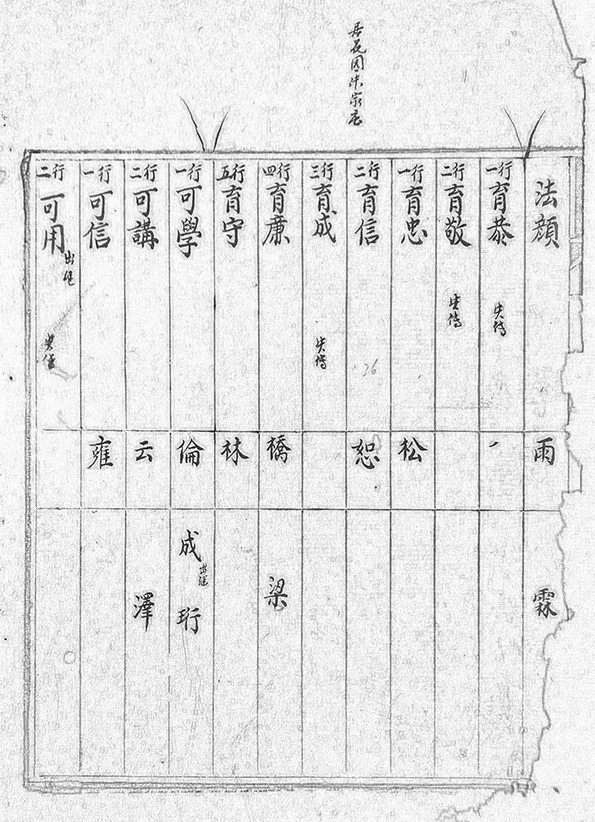 法顏 雨 霖
行一 育恭 失傳
行二 育敬 失傳
行一 育忠 松
行二 育信 恕
26
行三 育成 失傳
行四 育廉 橋 梁
行五 育守 林
行一 可學 倫 成 出繼 珩
行二 可講 云 澤
行一 可信 雍
行二 可用 出繼 失傳